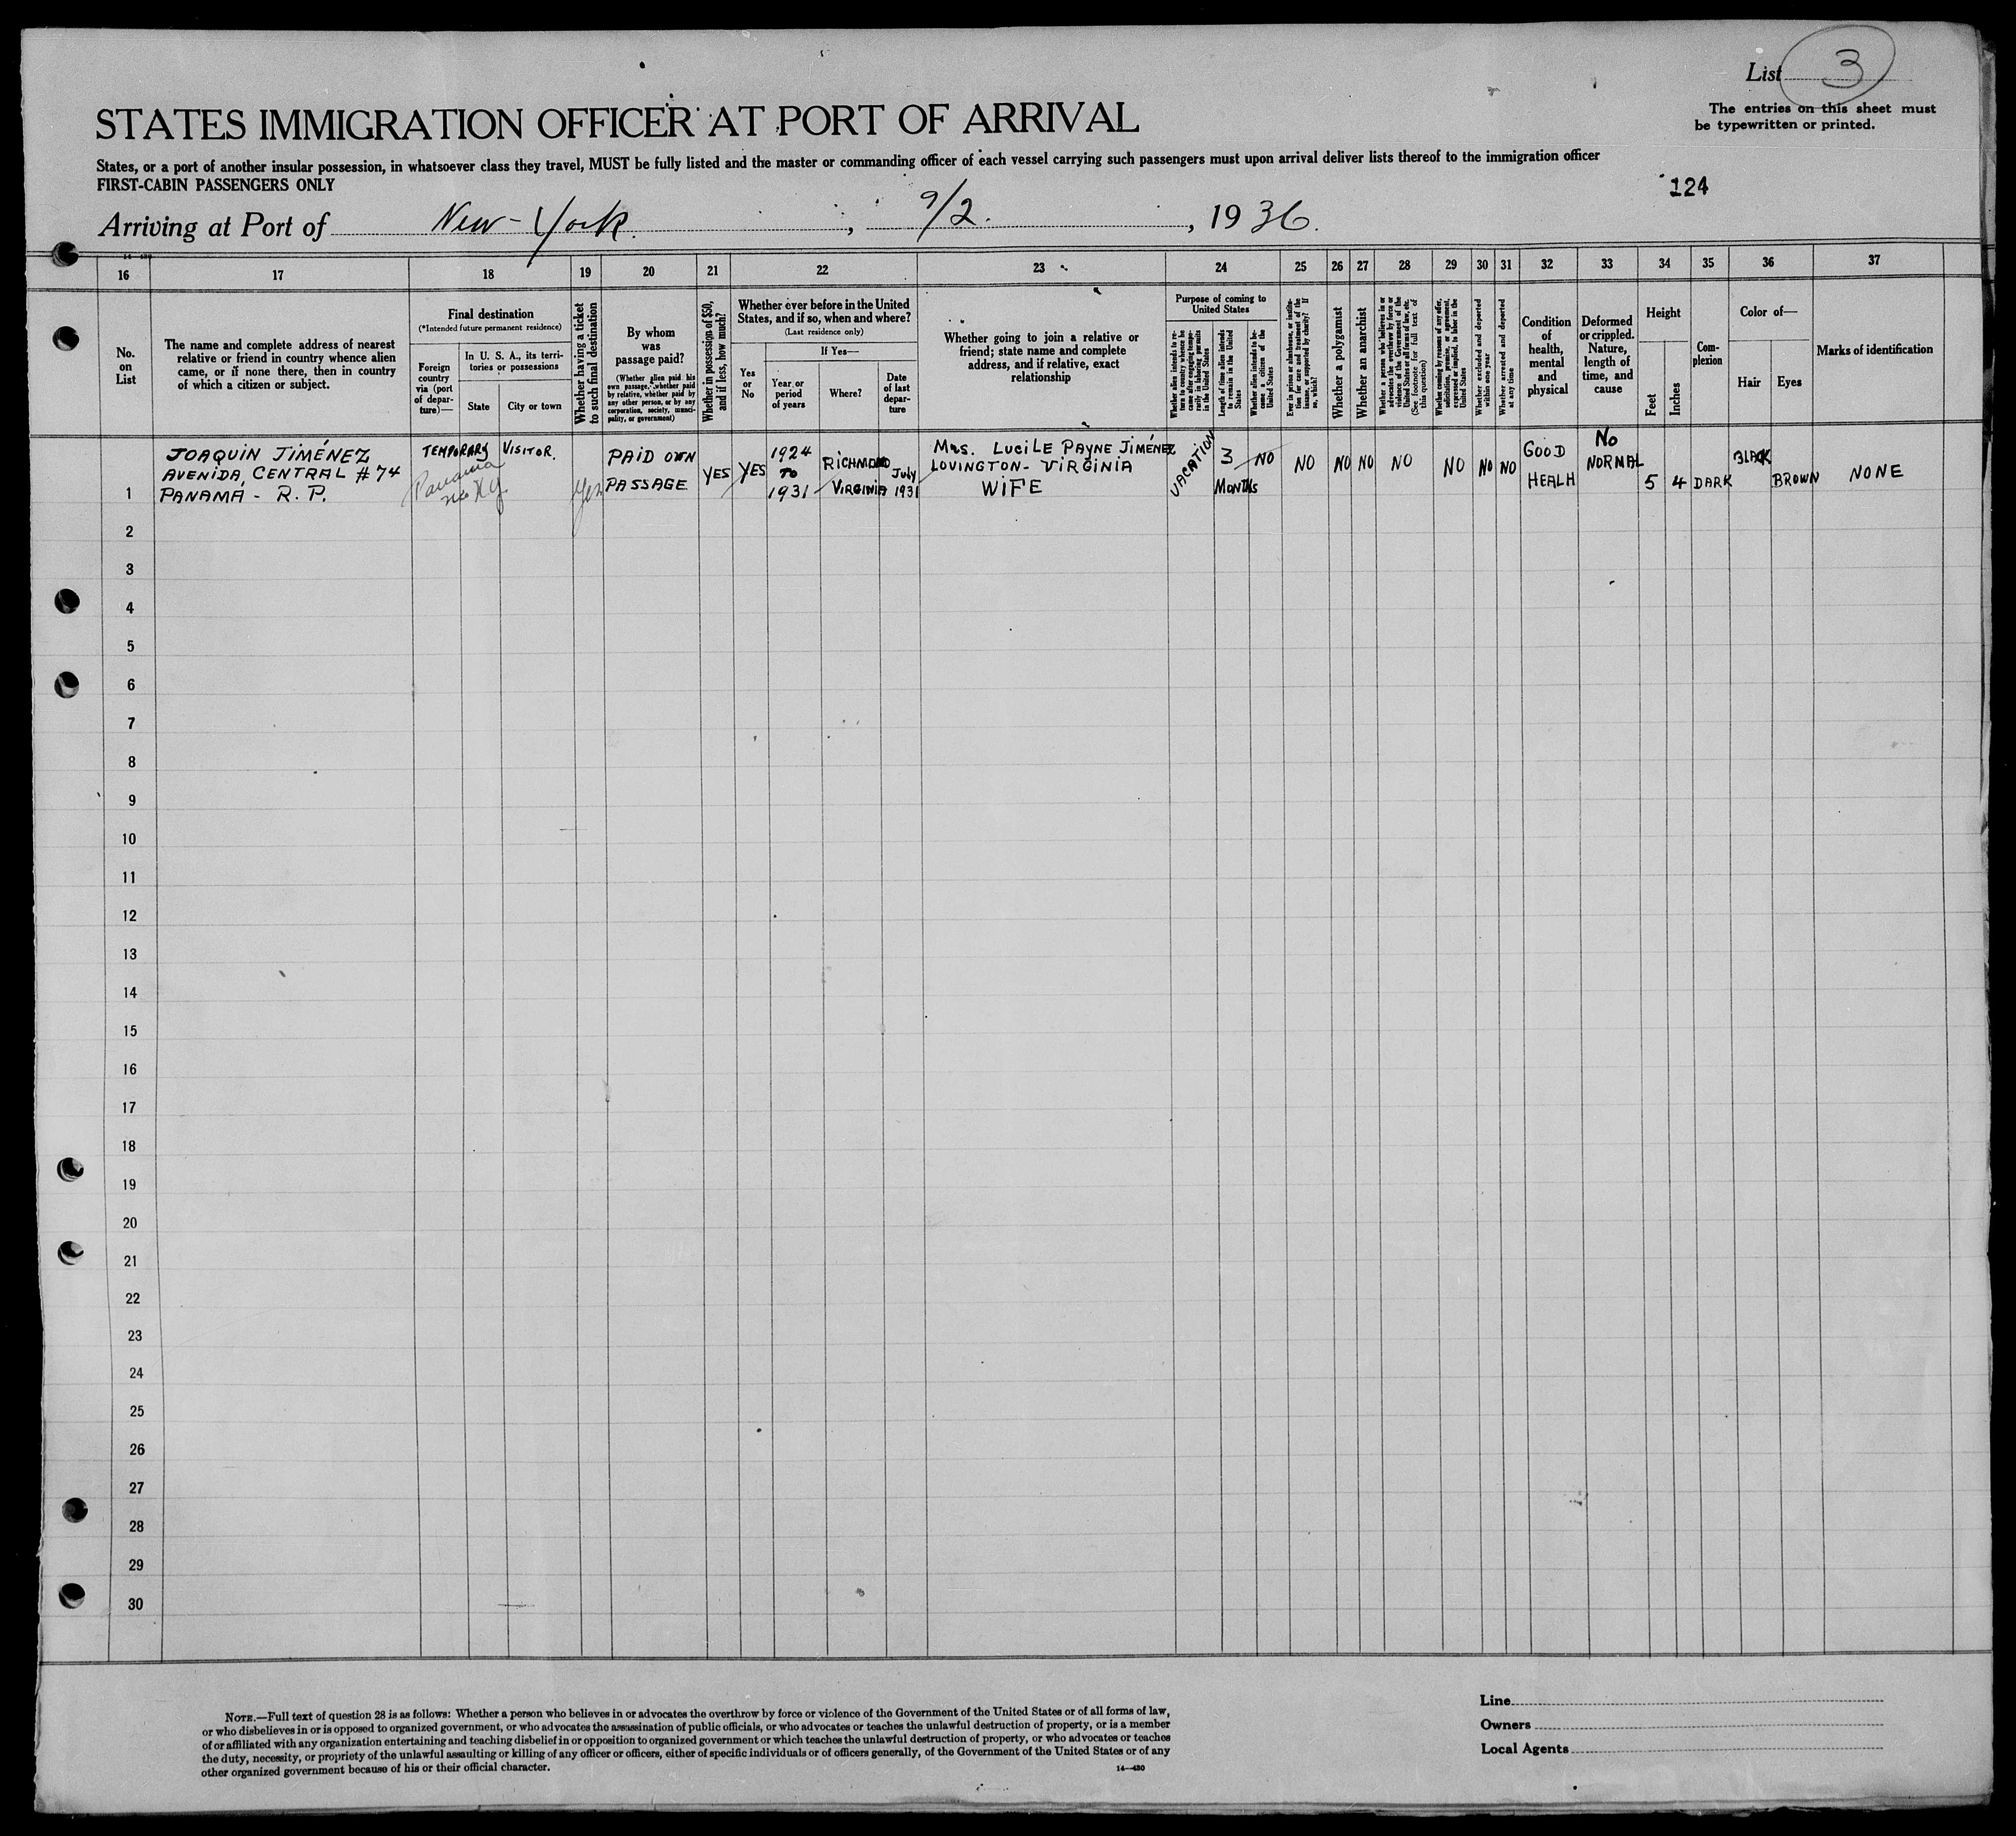 List 3
The entries on this sheet must
be typewritten or printed.
STATES IMMIGRATION OFFICER AT PORT OF ARRIVAL
States, or a port of another insular possession, in whatsoever class they travel, MUST be fully listed and the master or commanding officer of each vessel carrying such passengers must upon arrival deliver lists thereof to the immigration officer
FIRST-CABIN PASSENGERS ONLY
124
Arriving at Port of New-York. , 9/2. , 1936.
16 17 18 19 20 21 22 23 24 25 26 27 28 29 30 31 32 33 34 35 36 37
No.
on
List
The name and complete address of nearest
relative or friend in country whence alien
came, or if none there, then in country
of which a citizen or subject.
Final destination
(*Intended future permanent residence)
Foreign
country
via (port
of depar-
ture)—
In U. S. A., its terri-
tories or possessions
State
City or town
Whether having a ticket
to such final destination
By whom
was
passage paid?
(Whether alien paid his
own passage, whether paid
by relative, whether paid by
any other person, or by any
corporation, society, munici-
pality, or government)
Whether in possession of $50,
and if less, how much?
Whether ever before in the United
States, and if so, when and where?
(Last residence only)
Yes
or
No
If Yes—
Year or
period
of years
Where?
Date
of last
depar-
ture
Whether going to join a relative or
friend; state name and complete
address, and if relative, exact
relationship
Purpose of coming to
United States
Whether alien intends to re-
turn to country whence he
came after engaging tempo-
rarily in laboring pursuits
in the United States
Length of time alien intends
to remain in the United
States
Whether alien intends to be-
come a citizen of the
United States
Ever in prison or almshouse, or institu-
tion for care and treatment of the
insane, or supported by charity? If
so, which?
Whether a polygamist
Whether an anarchist
Whether a person who believes in or
advocates the overthrow by force or
violence of the Government of the
United States or all forms of law, etc.
(See footnote for full text of
this question)
Whether coming by reasons of any offer,
solicitation, promise, or agreement,
expressed or implied, to labor in the
United States
Whether excluded and deported
within one year
Whether arrested and deported
at any time
Condition
of
health,
mental
and
physical
Deformed
or crippled.
Nature,
length of
time, and
cause
Height
Feet
Inches
Com-
plexion
Color of—
Hair
Eyes
Marks of identification
1
JOAQUIN JIMÉNEZ
AVENIDA, CENTRAL # 74
PANAMA - R. P.
TEMPORARY VISITOR.
Panama
Yes
PAID OWN
PASSAGE
YES
YES
1924
TO
1931
RICHMOND
VIRGINIA
July
1931
MRS. LUCILE PAYNE JIMÉNEZ
LOVINGTON- VIRGINIA
WIFE
VACATION
3
MONTHS
NO
NO
NO
NO
NO
NO
NO
NO
GOOD
HEALH
NO
NORMAL
5
4
DARK
BLACK
BROWN
NONE
2
3
4
5
6
7
8
9
10
11
12
13
14
15
16
17
18
19
20
21
22
23
24
25
26
27
28
29
30
NOTE.—Full text of question 28 is as follows: Whether a person who believes in or advocates the overthrow by force or violence of the Government of the United States or of all forms of law,
or who disbelieves in or is opposed to organized government, or who advocates the assassination of public officials, or who advocates or teaches the unlawful destruction of property, or is a member
of or affiliated with any organization entertaining and teaching disbelief in or opposition to organized government or which teaches the unlawful destruction of property, or who advocates or teaches
the duty, necessity, or propriety of the unlawful assaulting or killing of any officer or officers, either of specific individuals or of officers generally, of the Government of the United States or of any
other organized government because of his or their official character.
14—430
Line
Owners
Local Agents